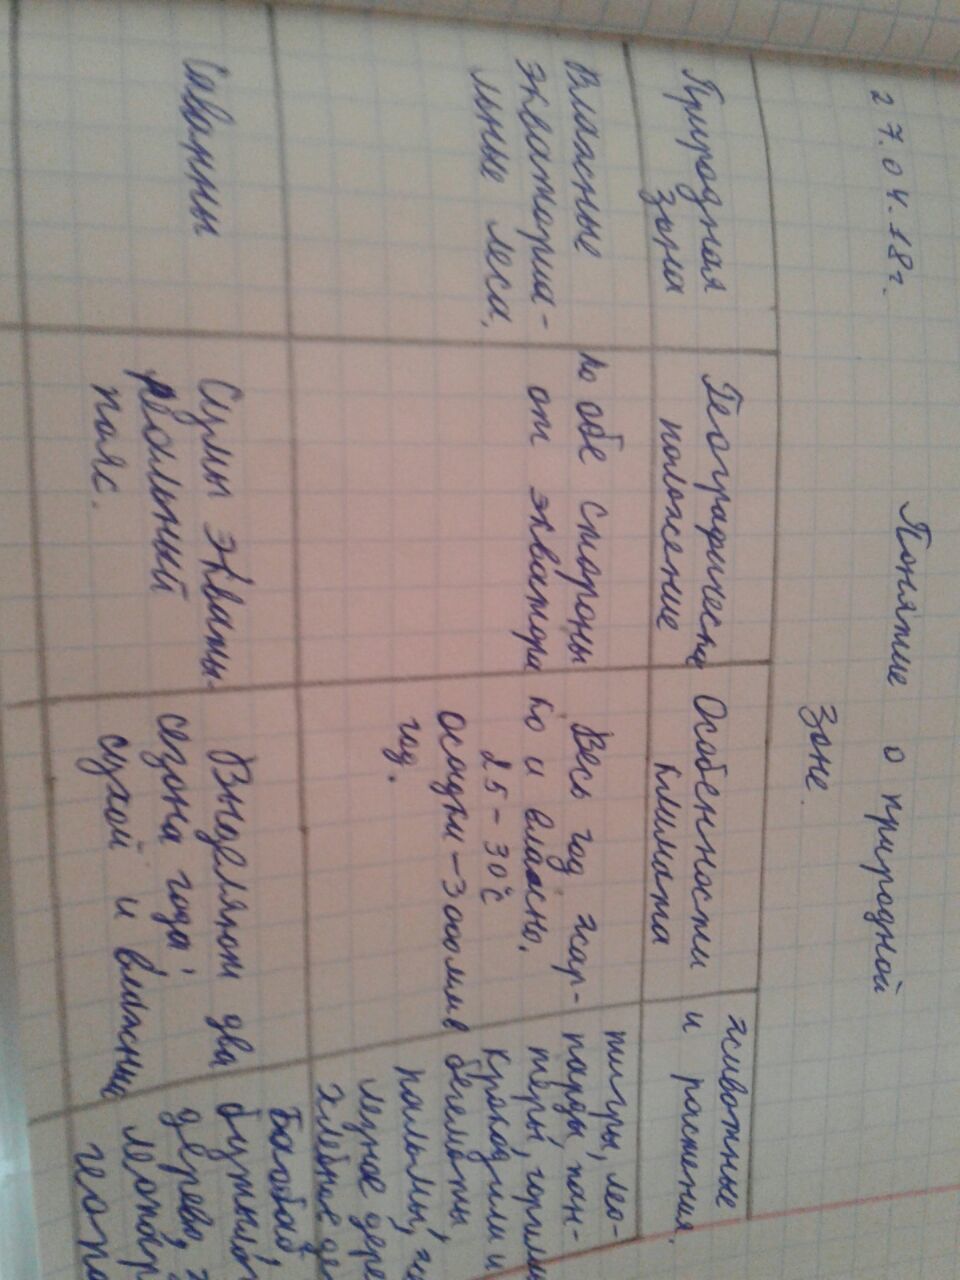 27.04.18г.
Понятие о природной
зоне.
Природная
зона
Географическ
положение
Особенности
климата
животные
и растения.
Влажные
экваториа-
льные леса.
по обе стороны
от экватора
Весь год жар-
ко и влажно.
25-30°C
осадки-3000мм в
год.
тигры, лео-
парды, пан-
теры,
крокодилы и
бегемоты
пальмы,
Саванны
Субэквато-
риальный
пояс.
Выделяют два
сезона года:
сухой и влажный
Баобаб,
дерево,